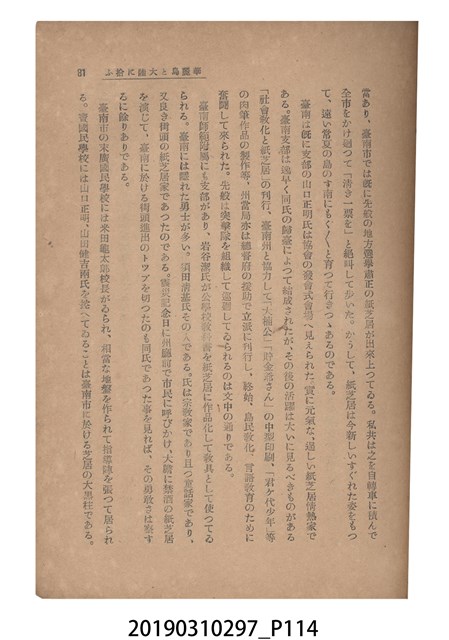 華麗島と大陸に於ふ　81
當あり、臺南市では既に先般の地方選擧肅正の紙芝居が出來上つてゐる。私共は之を自轉車に積んで
全市をかけ廻つて「清き一票を」と絶叫して歩いた。かうして、紙芝居は今新しいすぐれた姿をもつ
て、遠い常夏の島のす南にもぐん／＼と育つて行きつゝあるのである。
臺南は既に支部の山口正明氏は協會の發會式會場へ見えられた實に元氣な、逞しい紙芝居情熱家で
ある。臺南支部は逸早く同氏の歸臺によつて結成されたが、その後の活躍は大いに見るべきものがある
「社會敎化と紙芝居」の刊行、臺南州と協力して「大楠公」「貯金爺さん」の中型印刷、「君ケ代少年」等
の肉筆作品の製作等、州當局亦は總督府の援助で立派に刊行し、終始、島民敎化、育國敎育のために
奮鬪して來られた。先般は突擊隊を組織して巡迴してゐられるのは文中の通りである。
臺南師範附屬にも支部があり、岩谷潔氏が公學校敎科書を紙芝居に作品化して敎具として使つてゐ
られる。臺南には隱れた勇士が多い。須田清基氏その人である。氏は宗敎家であり且つ童話家であり
又良き街頭の紙芝居家であつたのである。震災記念日に州廳前で市民に呼びかけ、大膽に禁酒の紙芝居
を演じて、臺南に於ける街頭進出のトツプを切つたのも同氏であつた事を見れば、その勇敢さは察す
るに餘りありである。
臺南市の末廣國民學校には米田龜太郞校長がゐられ、相當な地盤を作られて指導陣を張つて居られ
る。寶國民學校には山口正明、山田健吉兩氏を抱へてゐることは臺南市に於ける芝居の大黑柱である。
20190310297_P114